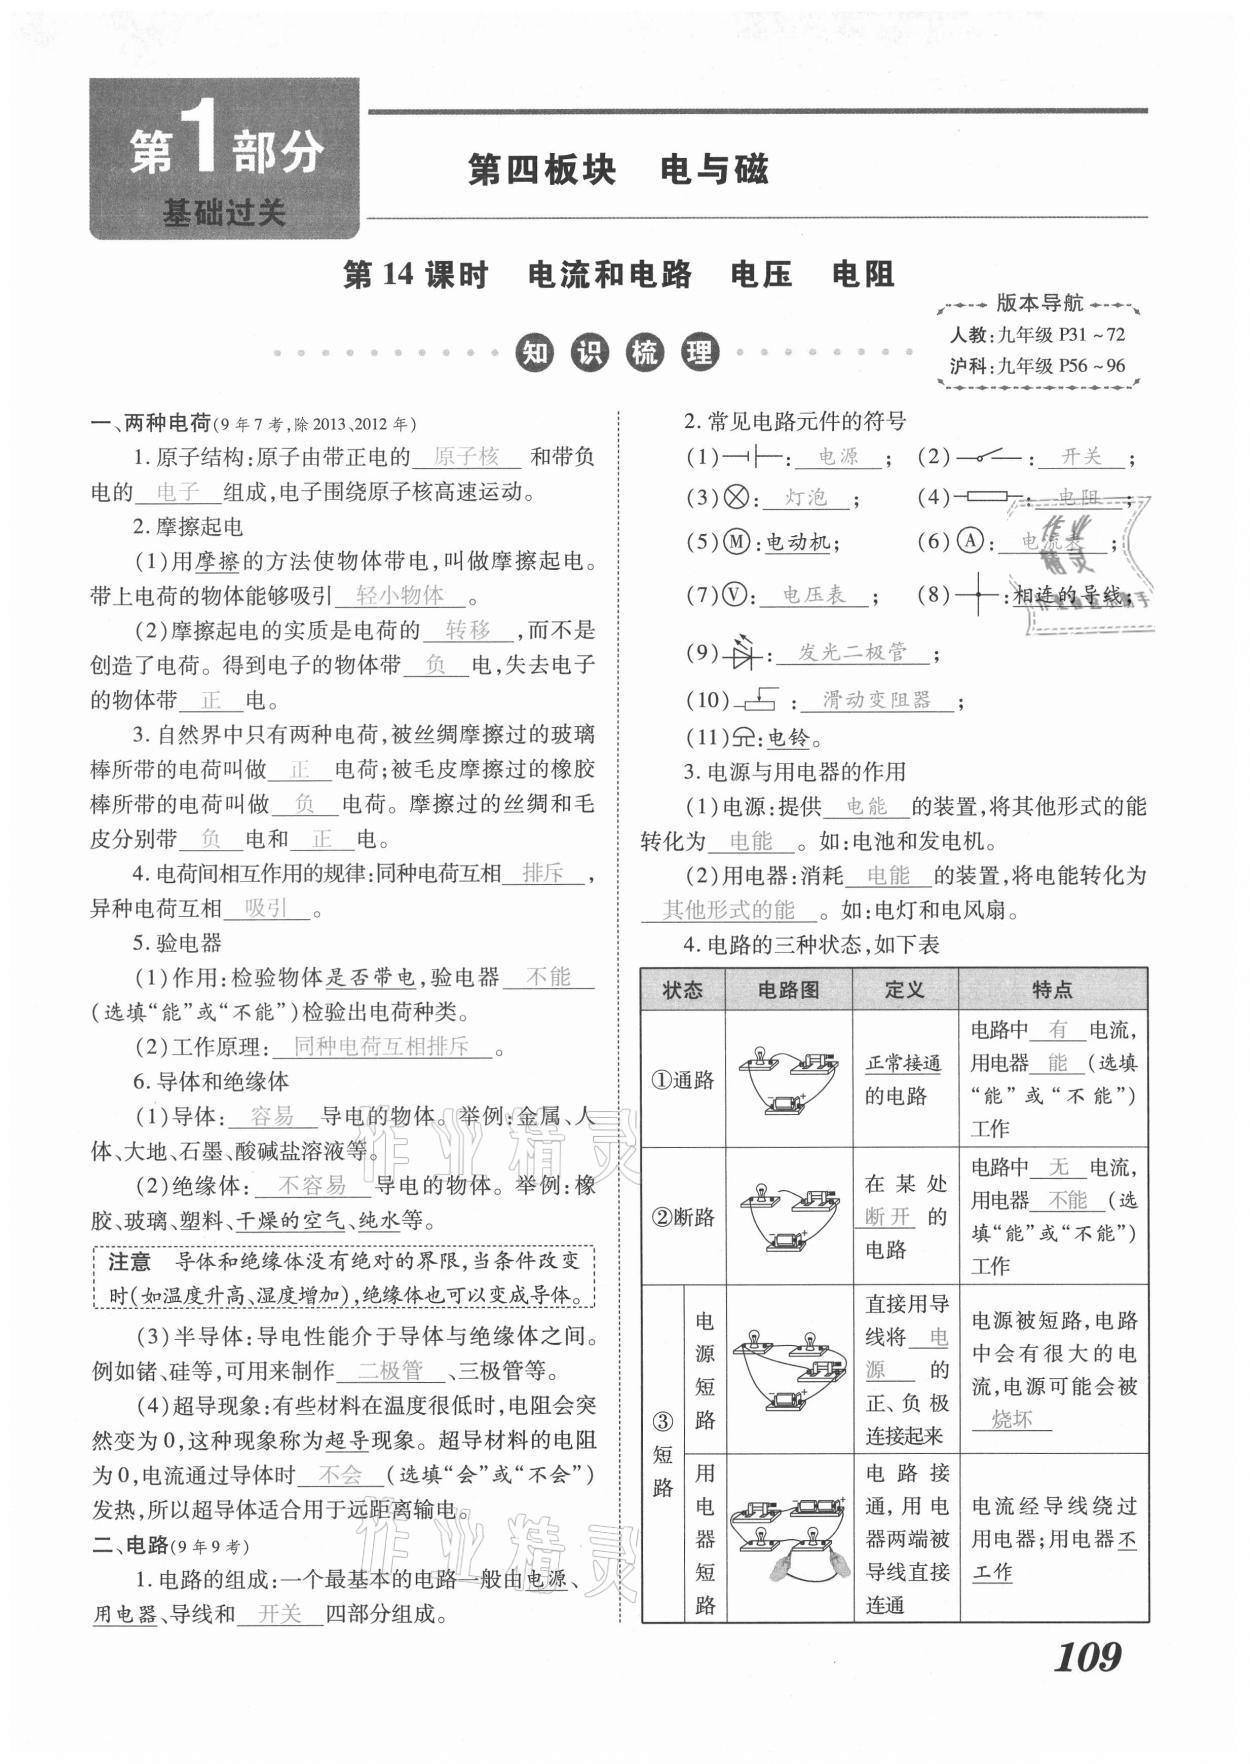 第1部分
基础过关
第四板块 电与磁
第 14 课时 电流和电路 电压 电阻
版本导航
人教:九年级 P31～72
沪科:九年级 P56～96
知识梳理
一、两种电荷(9 年 7 考,除 2013、2012 年)
1. 原子结构:原子由带正电的 原子核 和带负
电的 电子 组成,电子围绕原子核高速运动。
2. 摩擦起电
(1)用摩擦的方法使物体带电,叫做摩擦起电。
带上电荷的物体能够吸引 轻小物体 。
(2)摩擦起电的实质是电荷的 转移 ,而不是
创造了电荷。得到电子的物体带 负 电,失去电子
的物体带 正 电。
3. 自然界中只有两种电荷,被丝绸摩擦过的玻璃
棒所带的电荷叫做 正 电荷;被毛皮摩擦过的橡胶
棒所带的电荷叫做 负 电荷。摩擦过的丝绸和毛
皮分别带 负 电和 正 电。
4. 电荷间相互作用的规律:同种电荷互相 排斥 ,
异种电荷互相 吸引 。
5. 验电器
(1)作用:检验物体是否带电,验电器 不能
(选填“能”或“不能”)检验出电荷种类。
(2)工作原理: 同种电荷互相排斥 。
6. 导体和绝缘体
(1)导体: 容易 导电的物体。举例:金属、人
体、大地、石墨、酸碱盐溶液等。
(2)绝缘体: 不容易 导电的物体。举例:橡
胶、玻璃、塑料、干燥的空气、纯水等。
注意 导体和绝缘体没有绝对的界限,当条件改变
时(如温度升高、湿度增加),绝缘体也可以变成导体。
(3)半导体:导电性能介于导体与绝缘体之间。
例如锗、硅等,可用来制作 二极管 、三极管等。
(4)超导现象:有些材料在温度很低时,电阻会突
然变为 0,这种现象称为超导现象。超导材料的电阻
为 0,电流通过导体时 不会 (选填“会”或“不会”)
发热,所以超导体适合用于远距离输电。
二、电路(9 年 9 考)
1. 电路的组成:一个最基本的电路一般由电源、
用电器、导线和 开关 四部分组成。
2. 常见电路元件的符号
(1) : 电源 ; (2) : 开关 ;
(3) : 灯泡 ; (4) : 电阻 ;
(5)M:电动机; (6)A: 电流表 ;
(7)V: 电压表 ; (8) :相连的导线;
(9) : 发光二极管 ;
(10) : 滑动变阻器 ;
(11) :电铃。
3. 电源与用电器的作用
(1)电源:提供 电能 的装置,将其他形式的能
转化为 电能 。如:电池和发电机。
(2)用电器:消耗 电能 的装置,将电能转化为
其他形式的能 。如:电灯和电风扇。
4. 电路的三种状态,如下表
状态 电路图 定义 特点
①通路
正常接通
的电路
电路中 有 电流,
用电器 能 (选填
“能”或“不能”)
工作
②断路
在某处
断开 的
电路
电路中 无 电流,
用电器 不能 (选
填“能”或“不能”)
工作
③短路
电源短路
直接用导
线将 电
源 的
正、负极
连接起来
电源被短路,电路
中会有很大的电
流,电源可能会被
烧坏
用电器短路
电路接
通,用电
器两端被
导线直接
连通
电流经导线绕过
用电器;用电器不
工作
109
作业精灵
作业精灵
作业
精灵